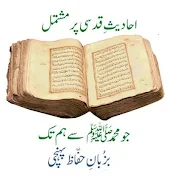 احادیثِ قدسی پر مشتمل
جو محمد ﷺ سے ہم تک
بزبانِ حفّاظ پہنچی